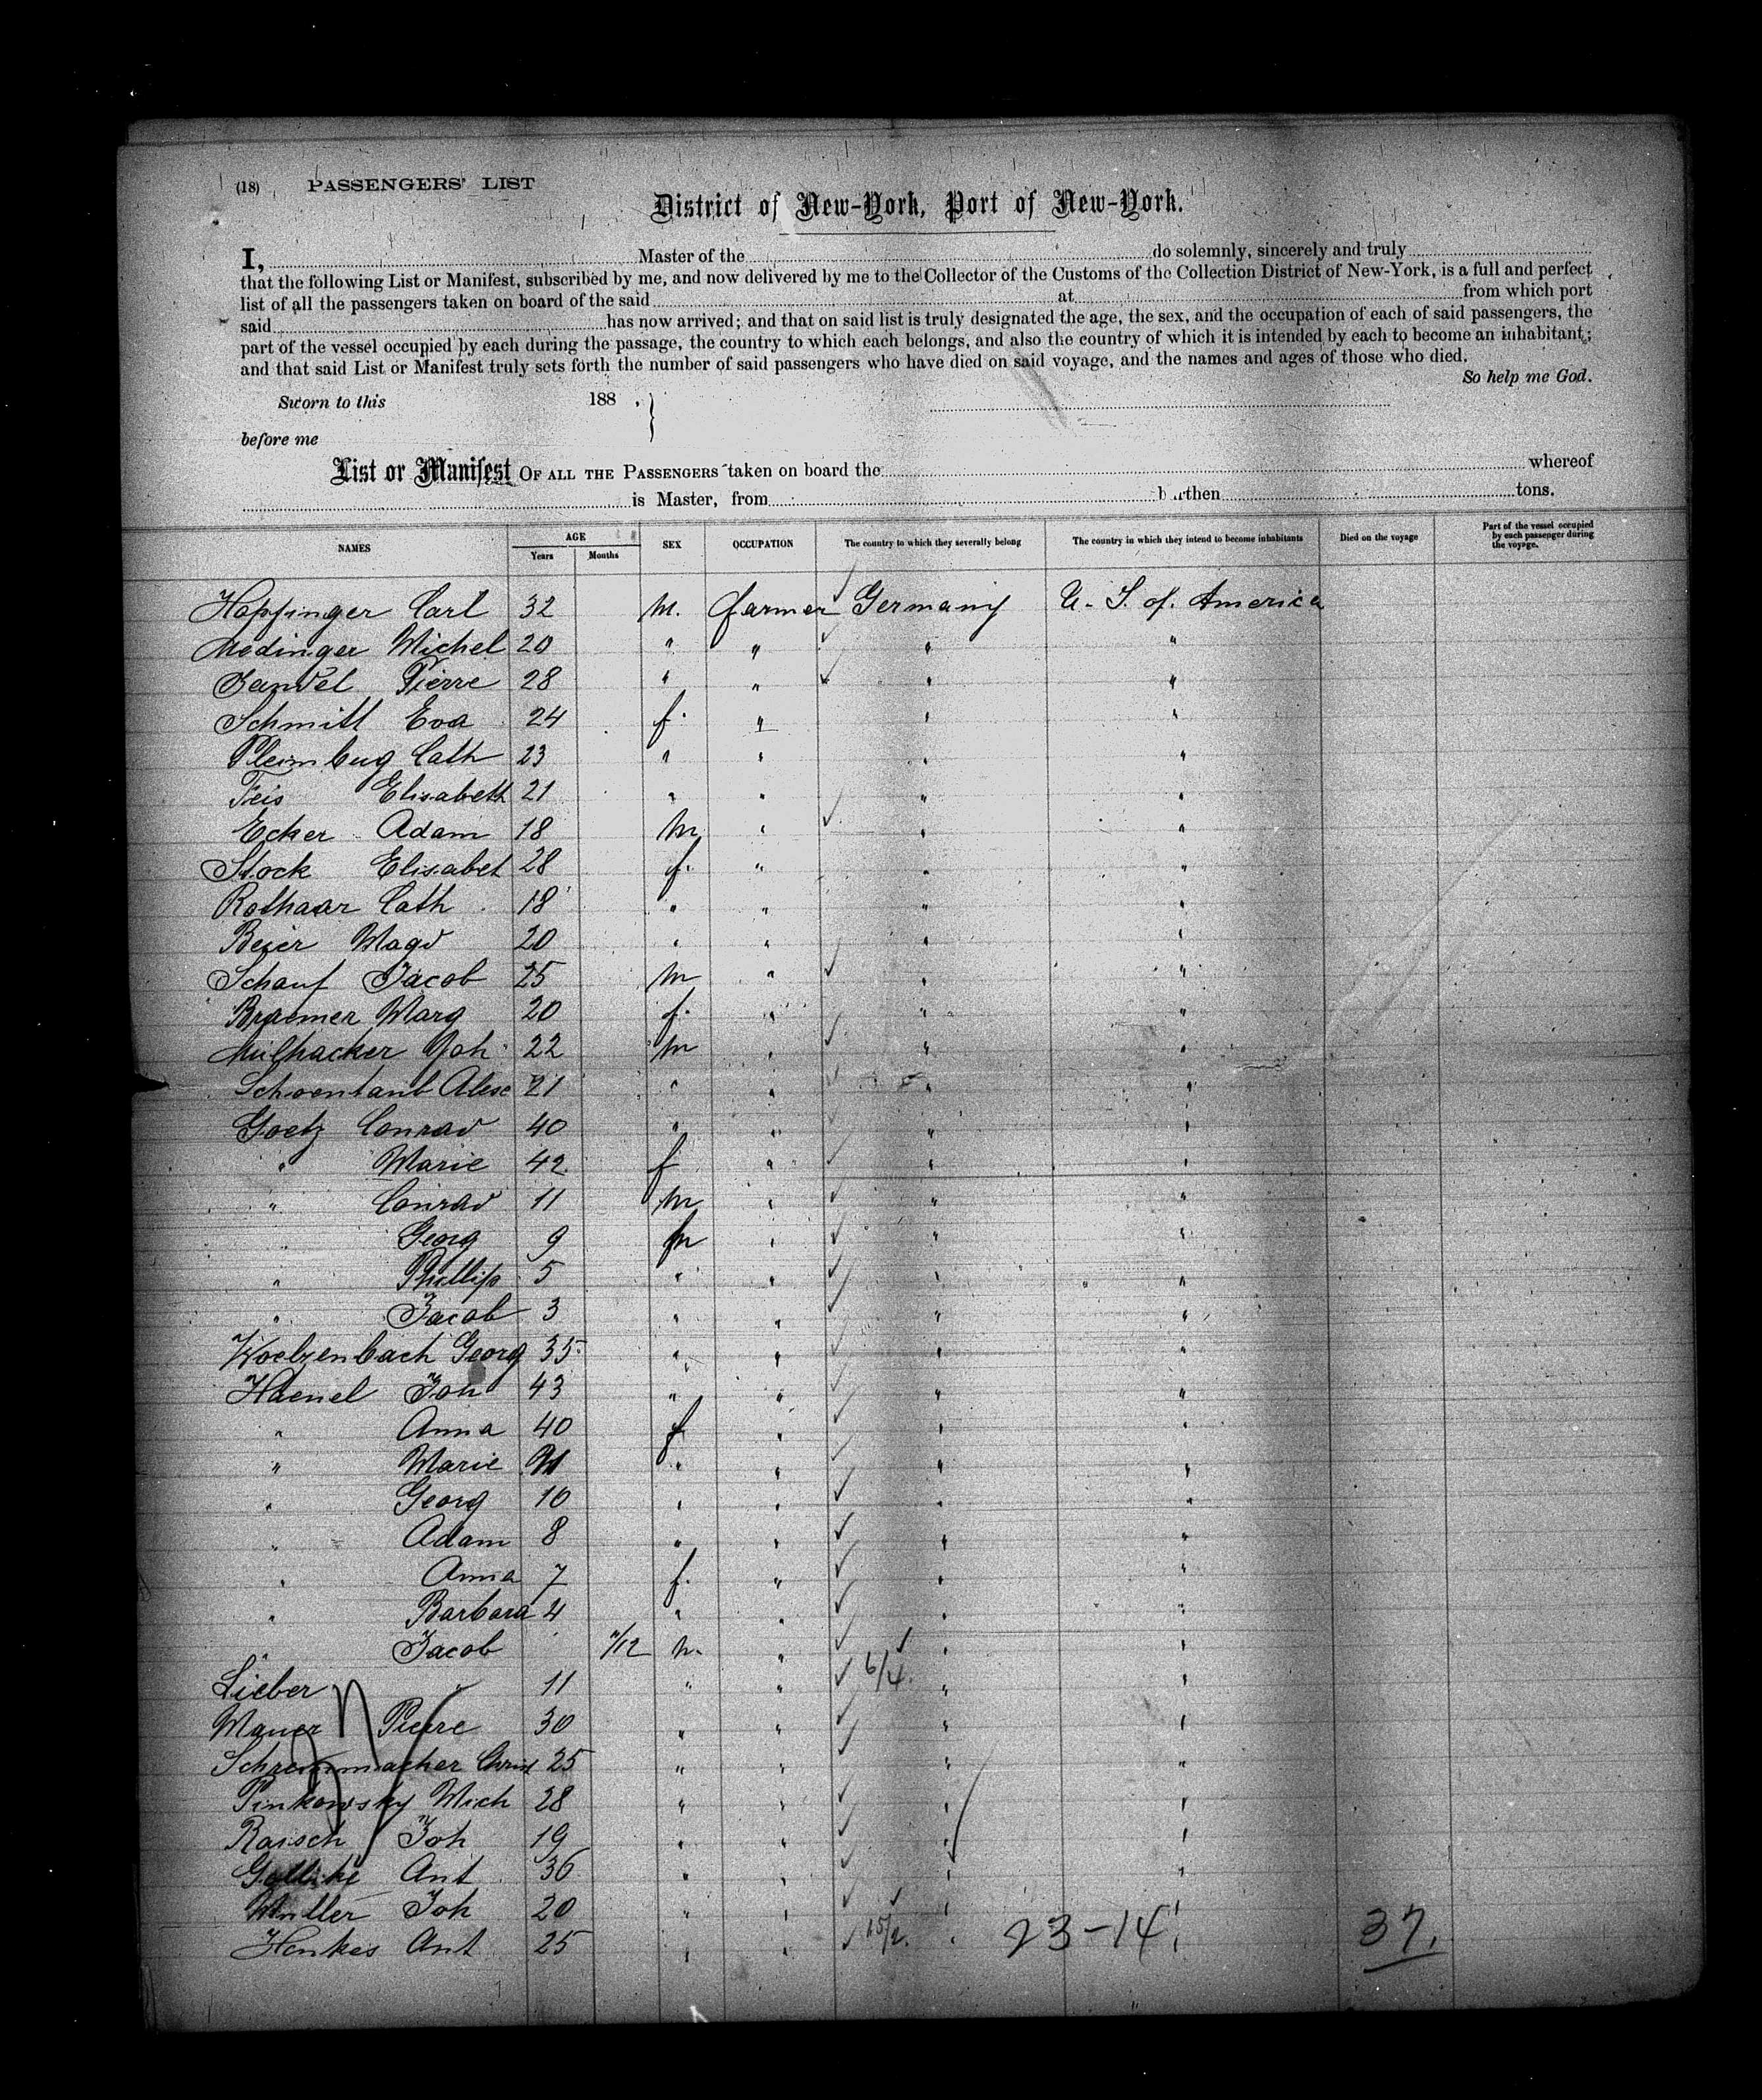 (18) PASSENGERS' LIST
District of New-York, Port of New-York.
I, Master of the do solemnly, sincerely and truly
that the following List or Manifest, subscribed by me, and now delivered by me to the Collector of the Customs of the Collection District of New-York, is a full and perfect
list of all the passengers taken on board of the said at from which port
said has now arrived; and that on said list is truly designated the age, the sex, and the occupation of each of said passengers, the
part of the vessel occupied by each during the passage, the country to which each belongs, and also the country of which it is intended by each to become an inhabitant;
and that said List or Manifest truly sets forth the number of said passengers who have died on said voyage, and the names and ages of those who died.
So help me God.
Sworn to this 188 . }
before me
List or Manifest OF ALL THE PASSENGERS taken on board the whereof
is Master, from burthen tons.
NAMES AGE Years Months SEX OCCUPATION The country to which they severally belong The country in which they intend to become inhabitants Died on the voyage Part of the vessel occupied by each passenger during the voyage.
Hopfinger Carl 32 m. farmer Germany U. S. of. America
Medinger Michel 20 " " " "
Pierre 28 " " " "
Schmitt Eva 24 f. " " "
Cath 23 " " " "
Feis Elisabeth 21 " " " "
Ecker Adam 18 m " " "
Stock Elisabet 28 f. " " "
Rothaar Cath 18 " " " "
Beier Magd 20 " " " "
Schauf Jacob 25 m " " "
Braemer Marg 20 f. " " "
Joh 22 m " " "
21 " " " "
Goetz Conrad 40 " " " "
" Marie 42 f " " "
" Conrad 11 m " " "
" Georg 9 m " " "
" Phillip 5 " " " "
" Jacob 3 " " " "
Woelzenbach Georg 35 " " " "
Haenel Joh 43 " " " "
" Anna 40 f " " "
" Marie " " " "
" Georg 10 " " " "
" Adam 8 " " " "
" Anna 7 f. " " "
" Barbara 4 " " " "
" Jacob 11/12 m. " " "
Lieber " 11 " " 6/4. " "
Mauer Pierre 30 " " " "
Christ 25 " " " "
Pinkowsky Mich 28 " " " "
Raisch Joh 19 " " " "
Ant 36 " " " "
Müller Joh 20 " " " "
Henkes Ant 25 " " 15/2. " 23-14 " 37.